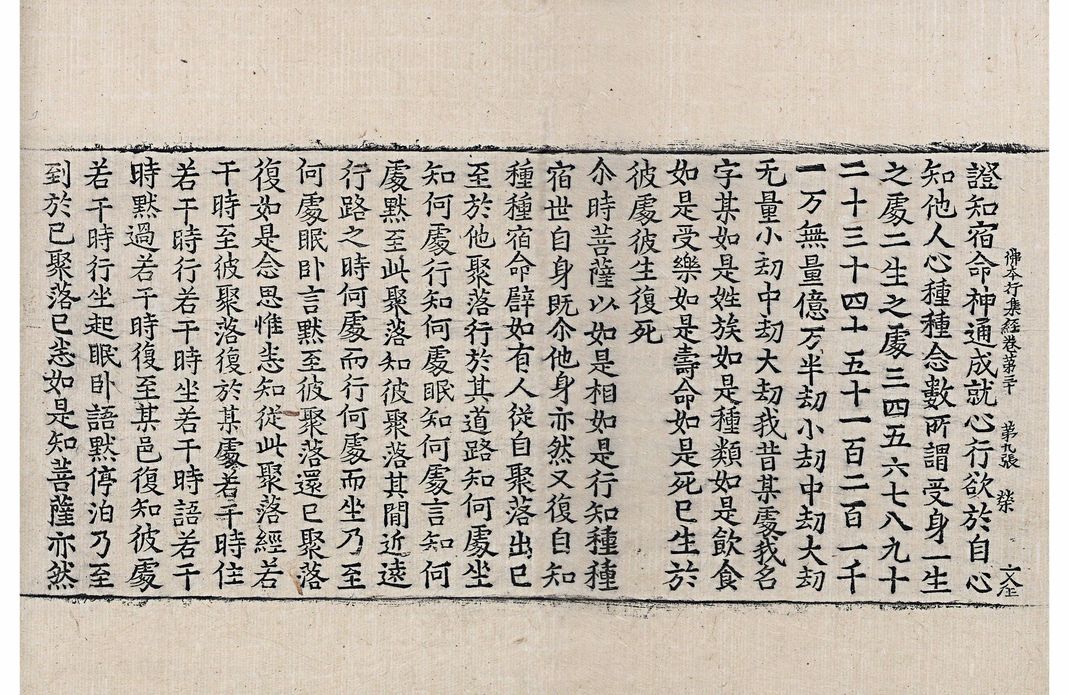 佛本行集經卷第三十　第九張　榮
證知宿命神通成就心行欲於自心
知他人心種種念數所謂受身一生
之處二生之處三四五六七八九十
二十三十四十五十一百二百一千
一万無量億万半劫小劫中劫大劫
无量小劫中劫大劫我昔某處我名
字某如是姓族如是種類如是飲食
如是受樂如是壽命如是死已生於
彼處彼生復死
尒時菩薩以如是相如是行知種種
宿世自身既尒他身亦然又復自知
種種宿命辟如有人從自聚落出已
至於他聚落行於其道路知何處坐
知何處行知何處眠知何處言知何
處默至此聚落知彼聚落其間近遠
行路之時何處而行何處而坐乃至
何處眠卧言默至彼聚落還已聚落
復如是念思惟悉知從此聚落經若
干時至彼聚落復於某處若干時住
若干時行若干時坐若干時語若干
時默過若干時復至某邑復知彼處
若干時行坐起眠卧語默停泊乃至
到於已聚落已悉如是知菩薩亦然